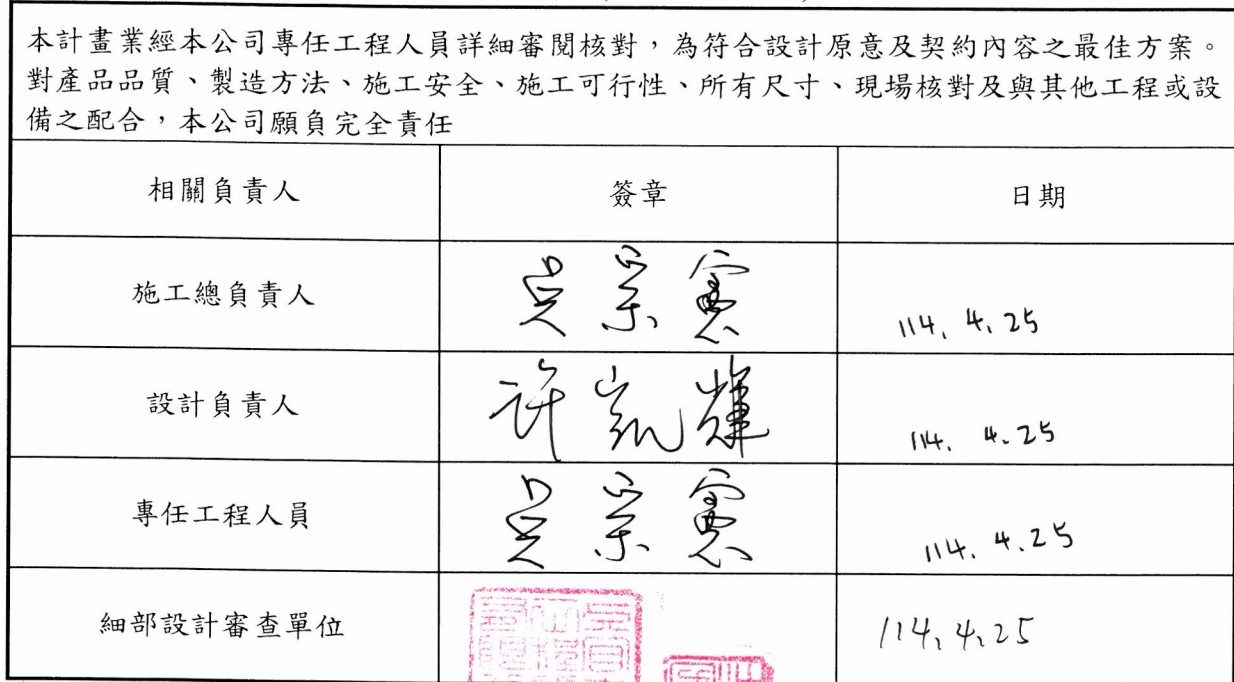 本計畫業經本公司專任工程人員詳細審閱核對，為符合設計原意及契約內容之最佳方案。
對產品品質、製造方法、施工安全、施工可行性、所有尺寸、現場核對及與其他工程或設
備之配合，本公司願負完全責任
相關負責人 簽章 日期
施工總負責人 吳宗憲 114.4.25
設計負責人 許凱輝 114.4.25
專任工程人員 吳宗憲 114.4.25
細部設計審查單位 114.4.25